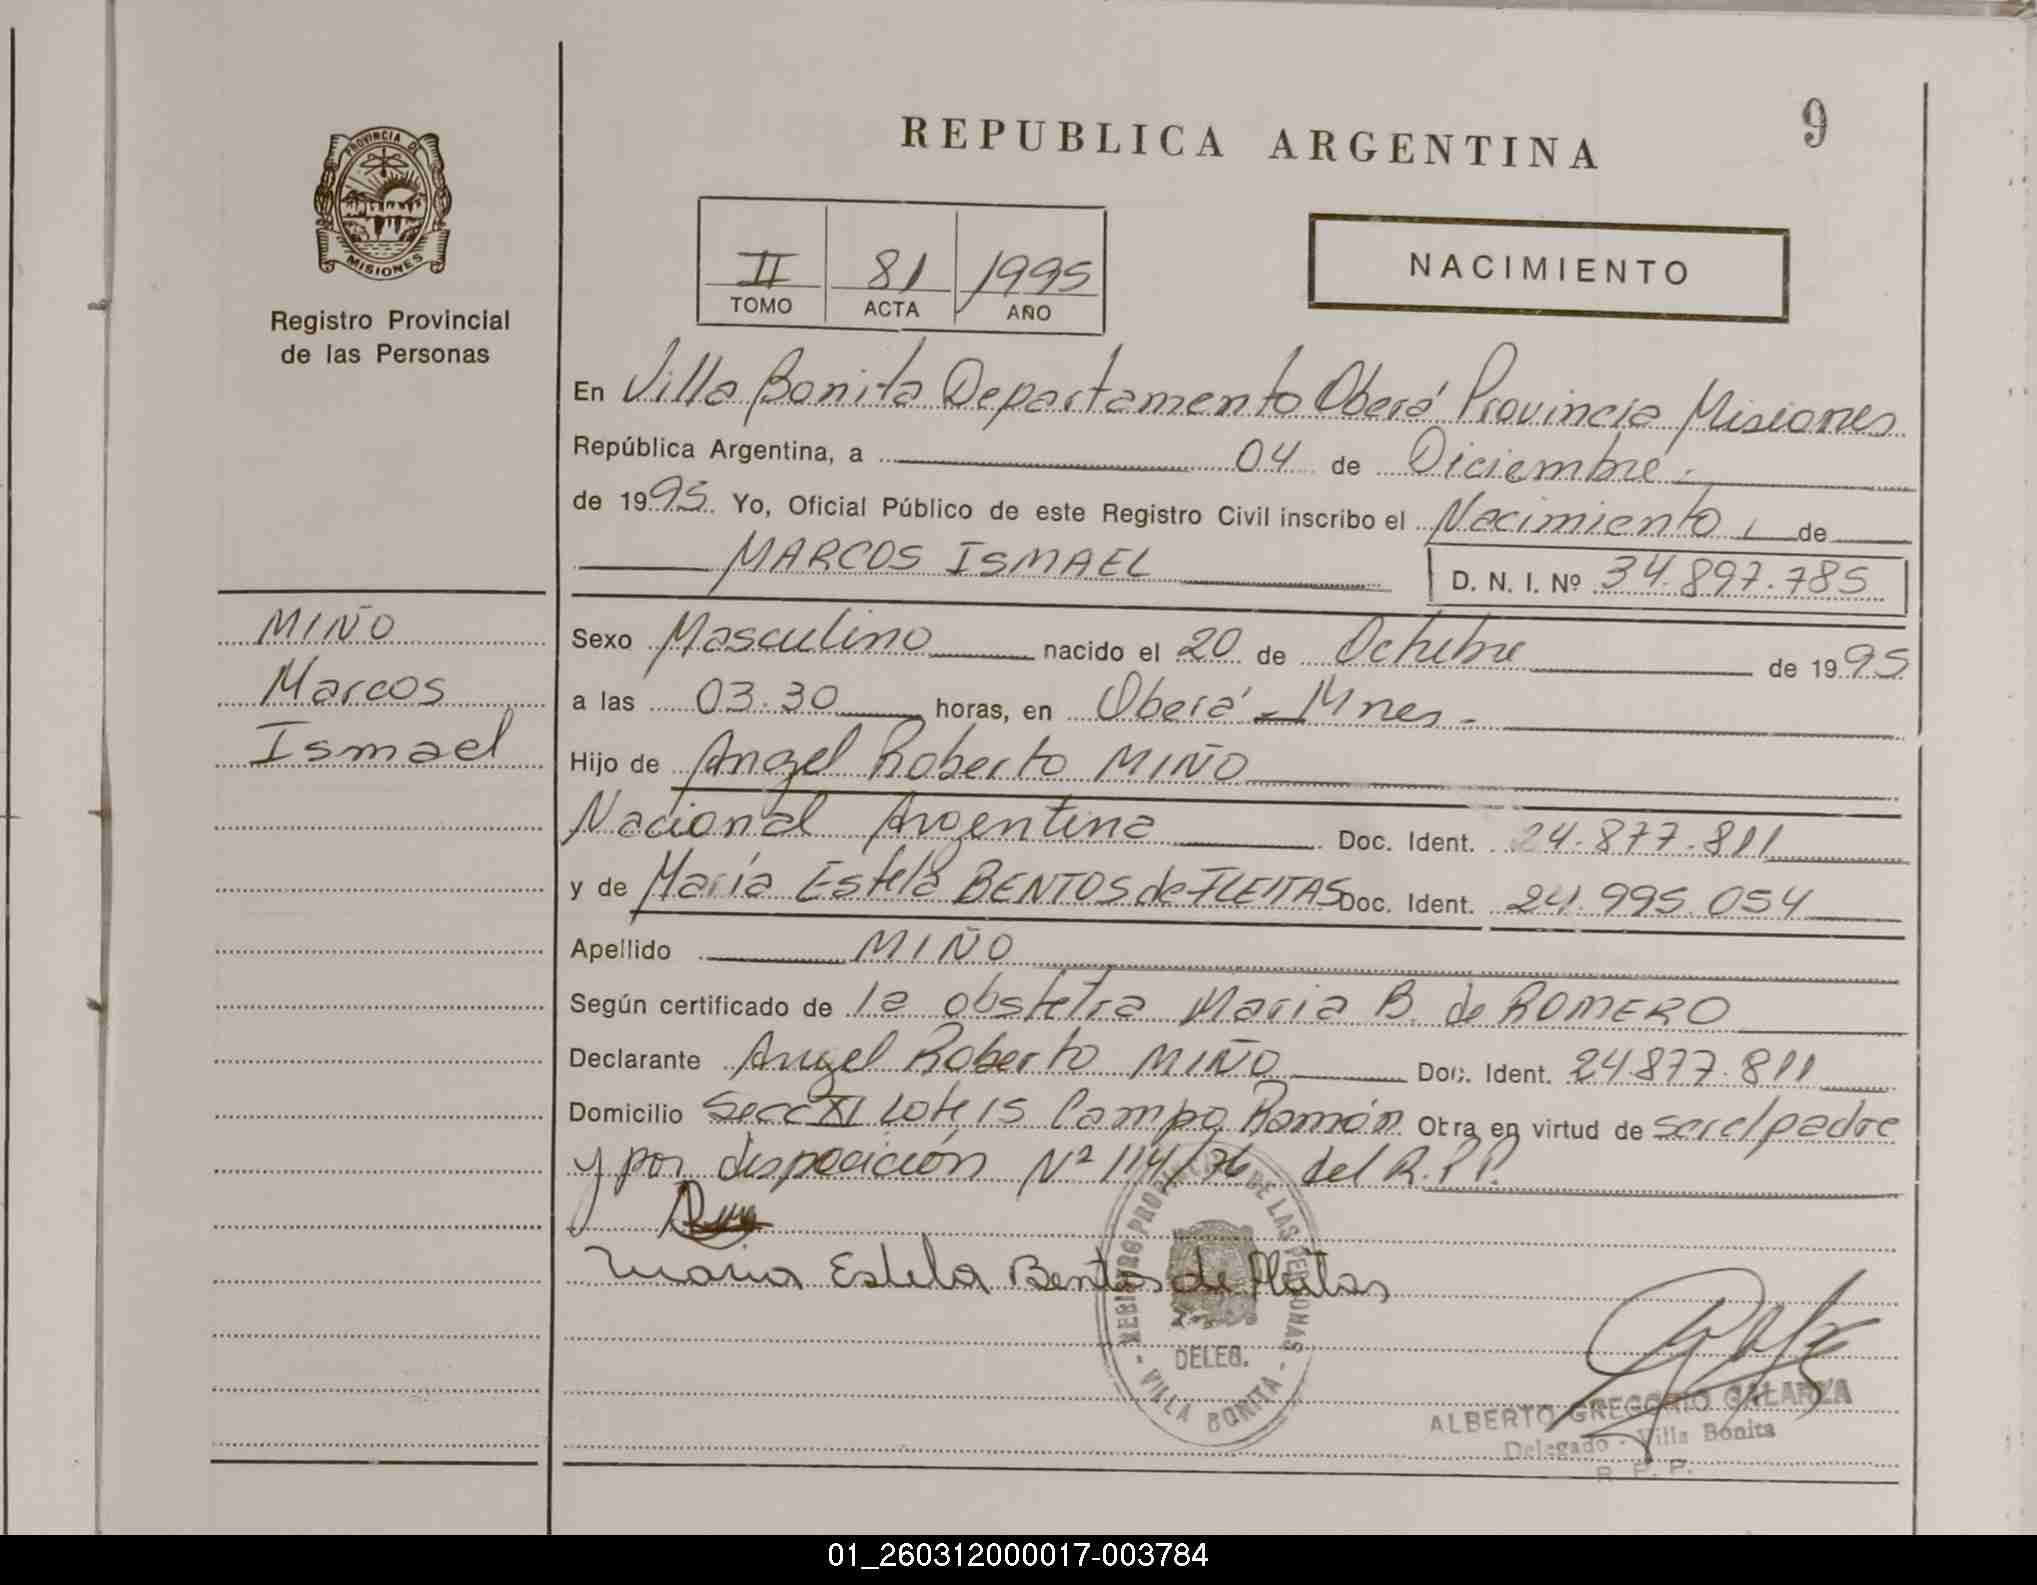 9
REPUBLICA ARGENTINA
PROVINCIA DE
MISIONES
Registro Provincial
de las Personas
II 81 1995
TOMO ACTA AÑO
NACIMIENTO
En Villa Bonita Departamento Oberá Provincia Misiones
República Argentina, a 04 de Diciembre.
de 1995. Yo, Oficial Público de este Registro Civil inscribo el Nacimiento, de
MARCOS ISMAEL D. N. I. Nº 34.897.785
MIÑO
Marcos
Ismael
Sexo Masculino nacido el 20 de Octubre de 1995
a las 03.30 horas, en Oberá - Mnes.
Hijo de Angel Roberto MIÑO
Nacional Argentina Doc. Ident. 24.877.811
y de María Estela BENTOS de FLEITAS Doc. Ident. 24.995.054
Apellido MIÑO
Según certificado de la obstetra Maria B. de ROMERO
Declarante Angel Roberto MIÑO Doc. Ident. 24877.811
Domicilio Secc XI Lote 15 Campo Ramón Obra en virtud de ser el padre
y por disposición Nº 114/76 del R.P.P.
Maria Estela Bentos de Fleitas
REGISTRO PROVINCIAL DE LAS PERSONAS
DELEG.
- VILLA BONITA -
ALBERTO GREGORIO GALARZA
Delegado - Villa Bonita
R. P. P.
01_260312000017-003784